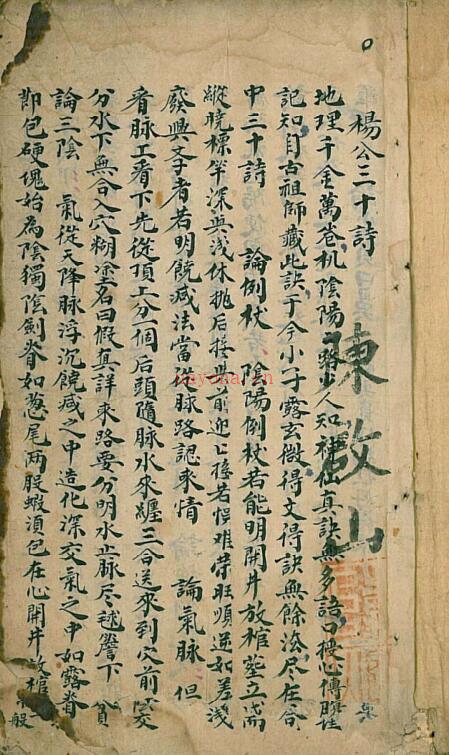 楊公三十詩
地理千金萬卷机陰陽一路少人知神仙真訣無多語口授心傳
記知自古祖師藏此訣于今小子露玄微得文得訣無餘法尽在
中三十詩　論倒杖　陰陽倒杖若能明開井放棺塟立
縱曉標竿深與浅休挑后接與前迎上
廢與文字者若明饒减法當從脉路認来情　論氣脉　但
看脉工看下先從頂上分個后頭随脉水来纏三合送来到穴前
分水下無合入穴糊塗名曰假真詳来路要分明水止脉尽毬簷下
論三陰　氣從天降脉浮沉饒减之中造化深交氣之中如露脊
即包硬塊始為陰獨陰劍脊如葱尾两股蝦須包在心開井放棺
陳啟山
nayona.cn